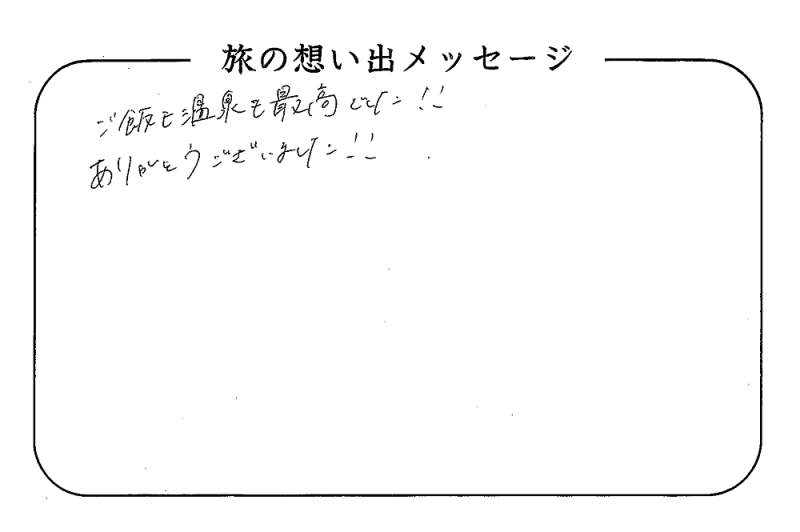 旅の想い出メッセージ
ご飯も温泉も最高でした!!
ありがとうございました!!